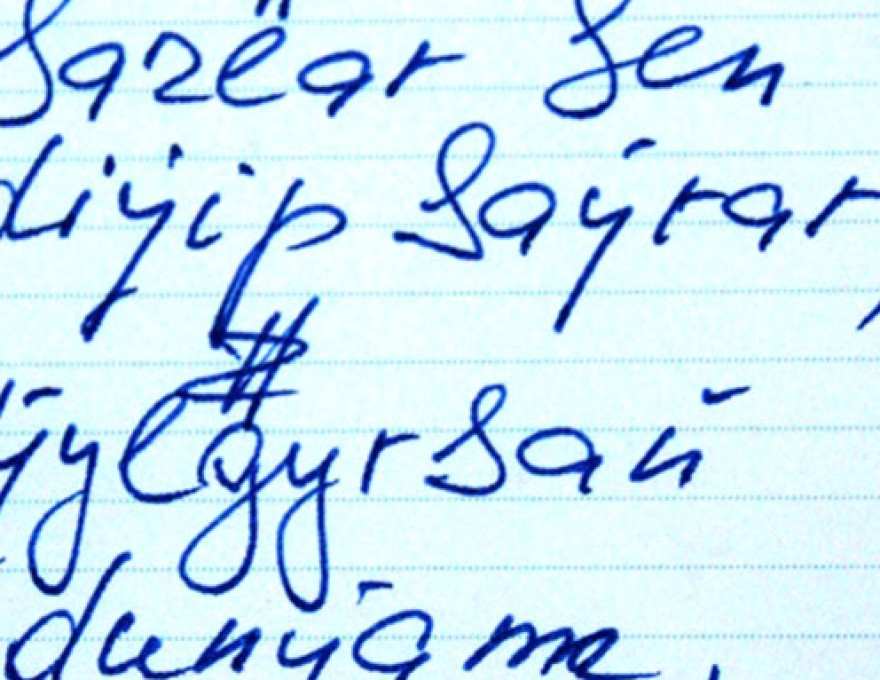 Sazlar Sen
diýip Saýrar,
ýylgyrsaň
dunýame,